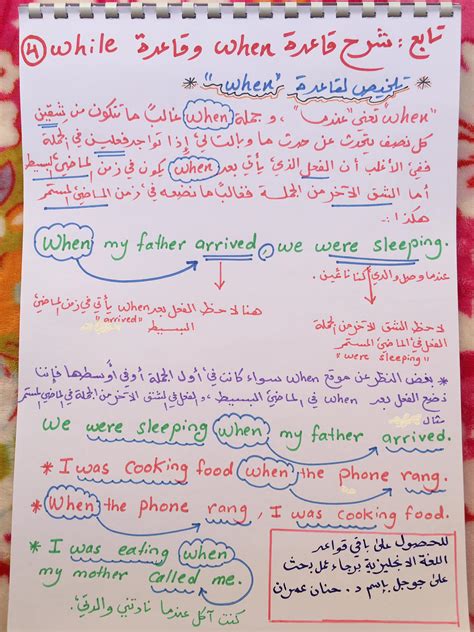 تابع : شرح قاعدة when وقاعدة while ④
* تلخيص لقاعدة "when" *
"when" تعني "عندما" ، و جملة when غالبًا ما تتكون من شقين
كل نصف يتحدث عن حدث ما وبالتالي إذا تواجد فعلين في الجملة
ففي الأغلب أن الفعل الذي يأتي بعد when يكون في زمن الماضي البسيط
أما الشق الآخر من الجملة فغالبًا ما نضعه في زمن الماضي المستمر
هكذا :
When my father arrived, we were sleeping.
عندما وصل والدي كنا نائمين.
هنا لاحظ الفعل بعد when يأتي في زمن الماضي
البسيط "arrived"
لاحظ الشق الآخر من الجملة
في الماضي المستمر
"were sleeping"
* بغض النظر عن موقع when سواء كانت في أول الجملة أو في أوسطها فإننا
نضع الفعل بعد when في الماضي البسيط ، والفعل في الشق الآخر من الجملة في الماضي المستمر
مثال
We were sleeping when my father arrived.
* I was cooking food when the phone rang.
* When the phone rang , I was cooking food.
* I was eating when
my mother called me.
كنت آكل عندما نادتني والدتي.
للحصول على باقي قواعد
اللغة الانجليزية برجاء عمل بحث
على جوجل بإسم د. حنان عمران